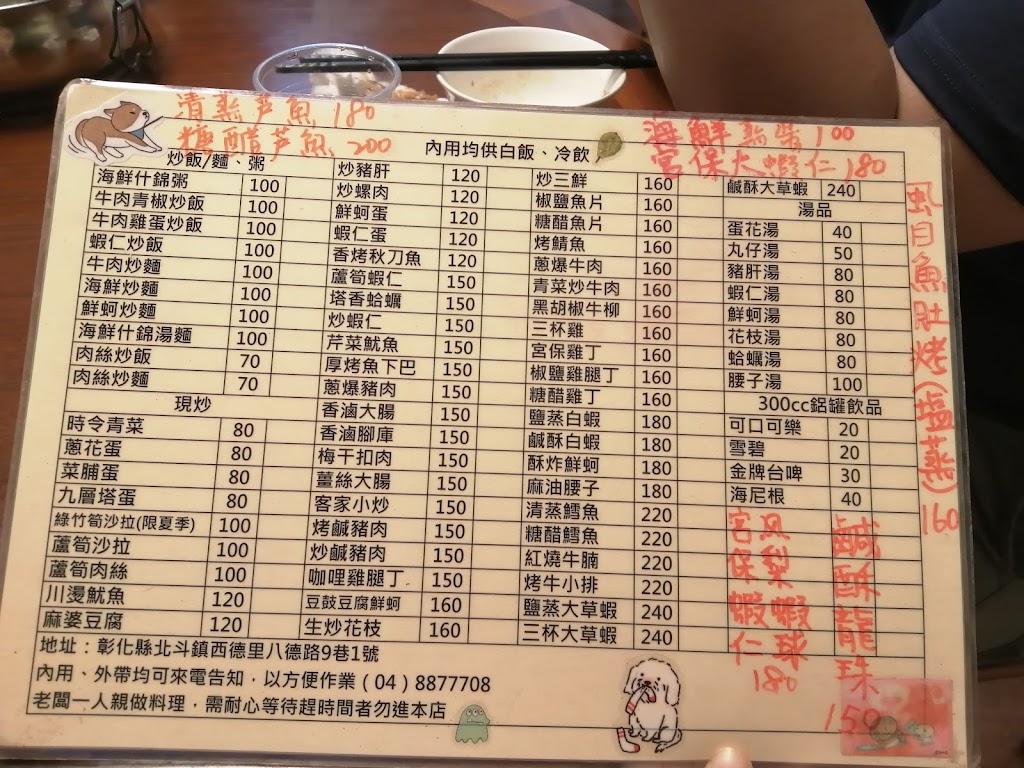 清蒸芦魚 180
糖醋芦魚 200
海鮮煎粿 100
宮保大蝦仁 180
內用均供白飯、冷飲
炒飯/麵、粥
海鮮什錦粥 100
牛肉青椒炒飯 100
牛肉雞蛋炒飯 100
蝦仁炒飯 100
牛肉炒麵 100
海鮮炒麵 100
鮮蚵炒麵 100
海鮮什錦湯麵 100
肉絲炒飯 70
肉絲炒麵 70
現炒
時令青菜 80
蔥花蛋 80
菜脯蛋 80
九層塔蛋 80
綠竹筍沙拉(限夏季) 100
蘆筍沙拉 100
蘆筍肉絲 100
川燙魷魚 120
麻婆豆腐 120
炒豬肝 120
炒螺肉 120
鮮蚵蛋 120
蝦仁蛋 120
香烤秋刀魚 120
蘆筍蝦仁 150
塔香蛤蠣 150
炒蝦仁 150
芹菜魷魚 150
厚烤魚下巴 150
蔥爆豬肉 150
香滷大腸 150
香滷腳庫 150
梅干扣肉 150
薑絲大腸 150
客家小炒 150
烤鹹豬肉 150
炒鹹豬肉 150
咖哩雞腿丁 150
豆豉豆腐鮮蚵 160
生炒花枝 160
炒三鮮 160
椒鹽魚片 160
糖醋魚片 160
烤鯖魚 160
蔥爆牛肉 160
青菜炒牛肉 160
黑胡椒牛柳 160
三杯雞 160
宮保雞丁 160
椒鹽雞腿丁 160
糖醋雞丁 160
鹽蒸白蝦 180
鹹酥白蝦 180
酥炸鮮蚵 180
麻油腰子 180
清蒸鱈魚 220
糖醋鱈魚 220
紅燒牛腩 220
烤牛小排 220
鹽蒸大草蝦 240
三杯大草蝦 240
鹹酥大草蝦 240
湯品
蛋花湯 40
丸仔湯 50
豬肝湯 80
蝦仁湯 80
鮮蚵湯 80
花枝湯 80
蛤蠣湯 80
腰子湯 100
300cc鋁罐飲品
可口可樂 20
雪碧 20
金牌台啤 30
海尼根 40
宮保蝦仁
鳳梨蝦球
180
鹹酥龍珠
150
虱目魚肚烤(塩蒸)160
地址：彰化縣北斗鎮西德里八德路9巷1號
內用、外帶均可來電告知，以方便作業（04）8877708
老闆一人親做料理，需耐心等待趕時間者勿進本店